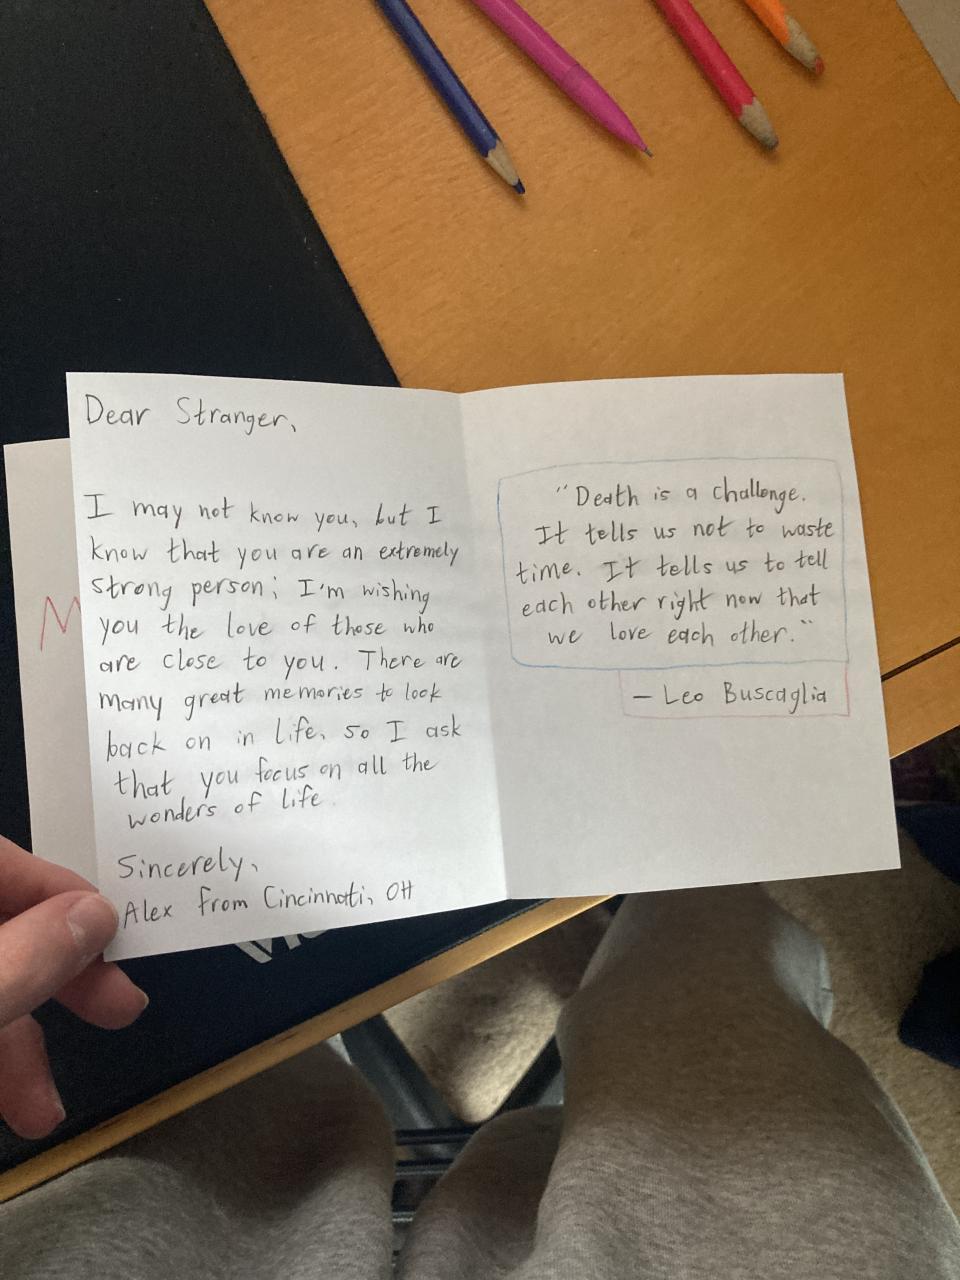 Dear Stranger,
I may not know you, but I
know that you are an extremely
strong person; I'm wishing
you the love of those who
are close to you. There are
many great memories to look
back on in life, so I ask
that you focus on all the
wonders of life.
Sincerely,
Alex from Cincinnati, OH
"Death is a challenge.
It tells us not to waste
time. It tells us to tell
each other right now that
we love each other."
— Leo Buscaglia
M